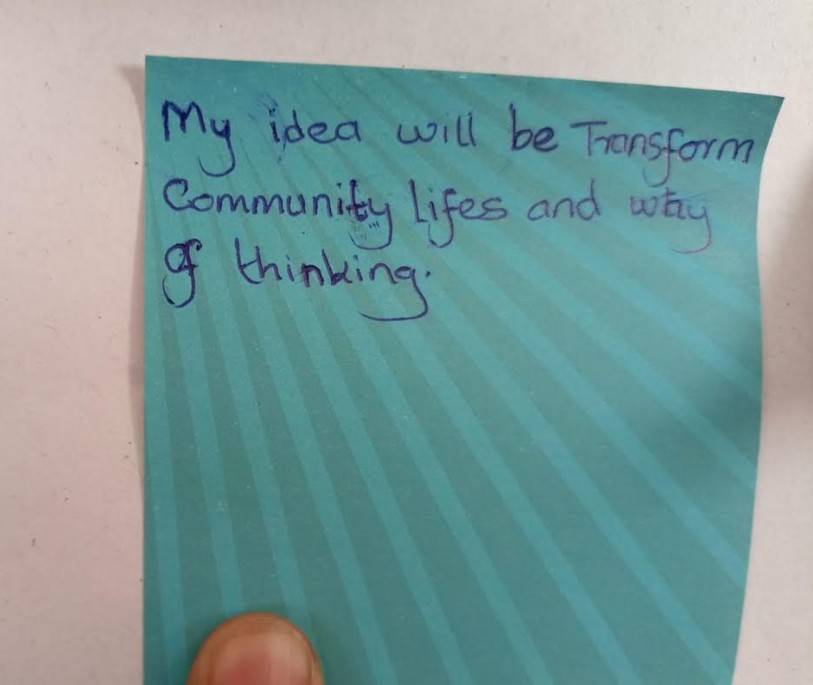 My idea will be Transform
Community lifes and way
of thinking.